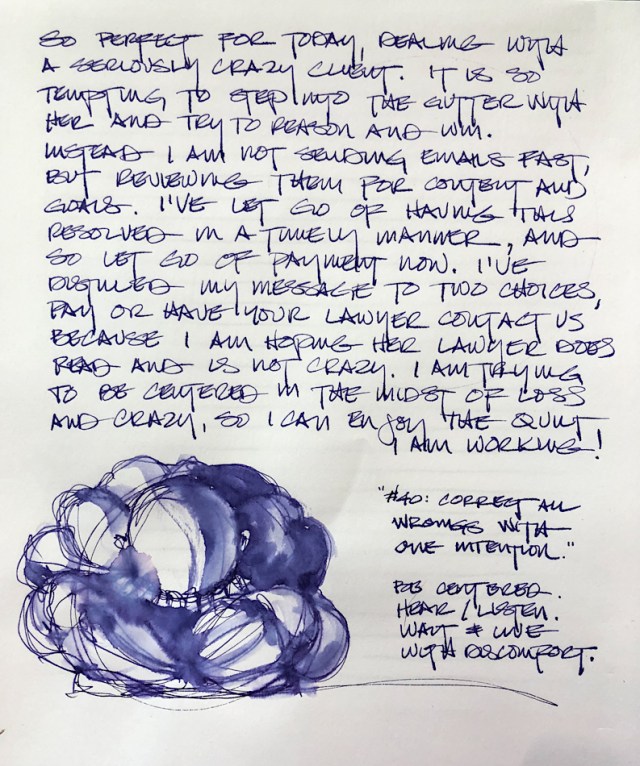 SO PERFECT FOR TODAY, DEALING WITH
A SERIOUSLY CRAZY CLIENT. IT IS SO
TEMPTING TO STEP INTO THE GUTTER WITH
HER AND TRY TO REASON AND WIN.
INSTEAD I AM NOT SENDING EMAILS FAST,
BUT REVIEWING THEM FOR CONTENT AND
GOALS. I'VE LET GO OF HAVING THIS
RESOLVED IN A TIMELY MANNER, AND
SO LET GO OF PAYMENT NOW. I'VE
DISTILLED MY MESSAGE TO TWO CHOICES,
PAY OR HAVE YOUR LAWYER CONTACT US
BECAUSE I AM HOPING HER LAWYER DOES
READ AND IS NOT CRAZY. I AM TRYING
TO BE CENTERED IN THE MIDST OF LOSS
AND CRAZY, SO I CAN ENJOY THE QUILT
I AM WORKING!
"#40: CORRECT ALL
WRONGS WITH
ONE INTENTION."
BE CENTERED.
HEAR / LISTEN.
WAIT & LIVE
WITH DISCOMFORT.